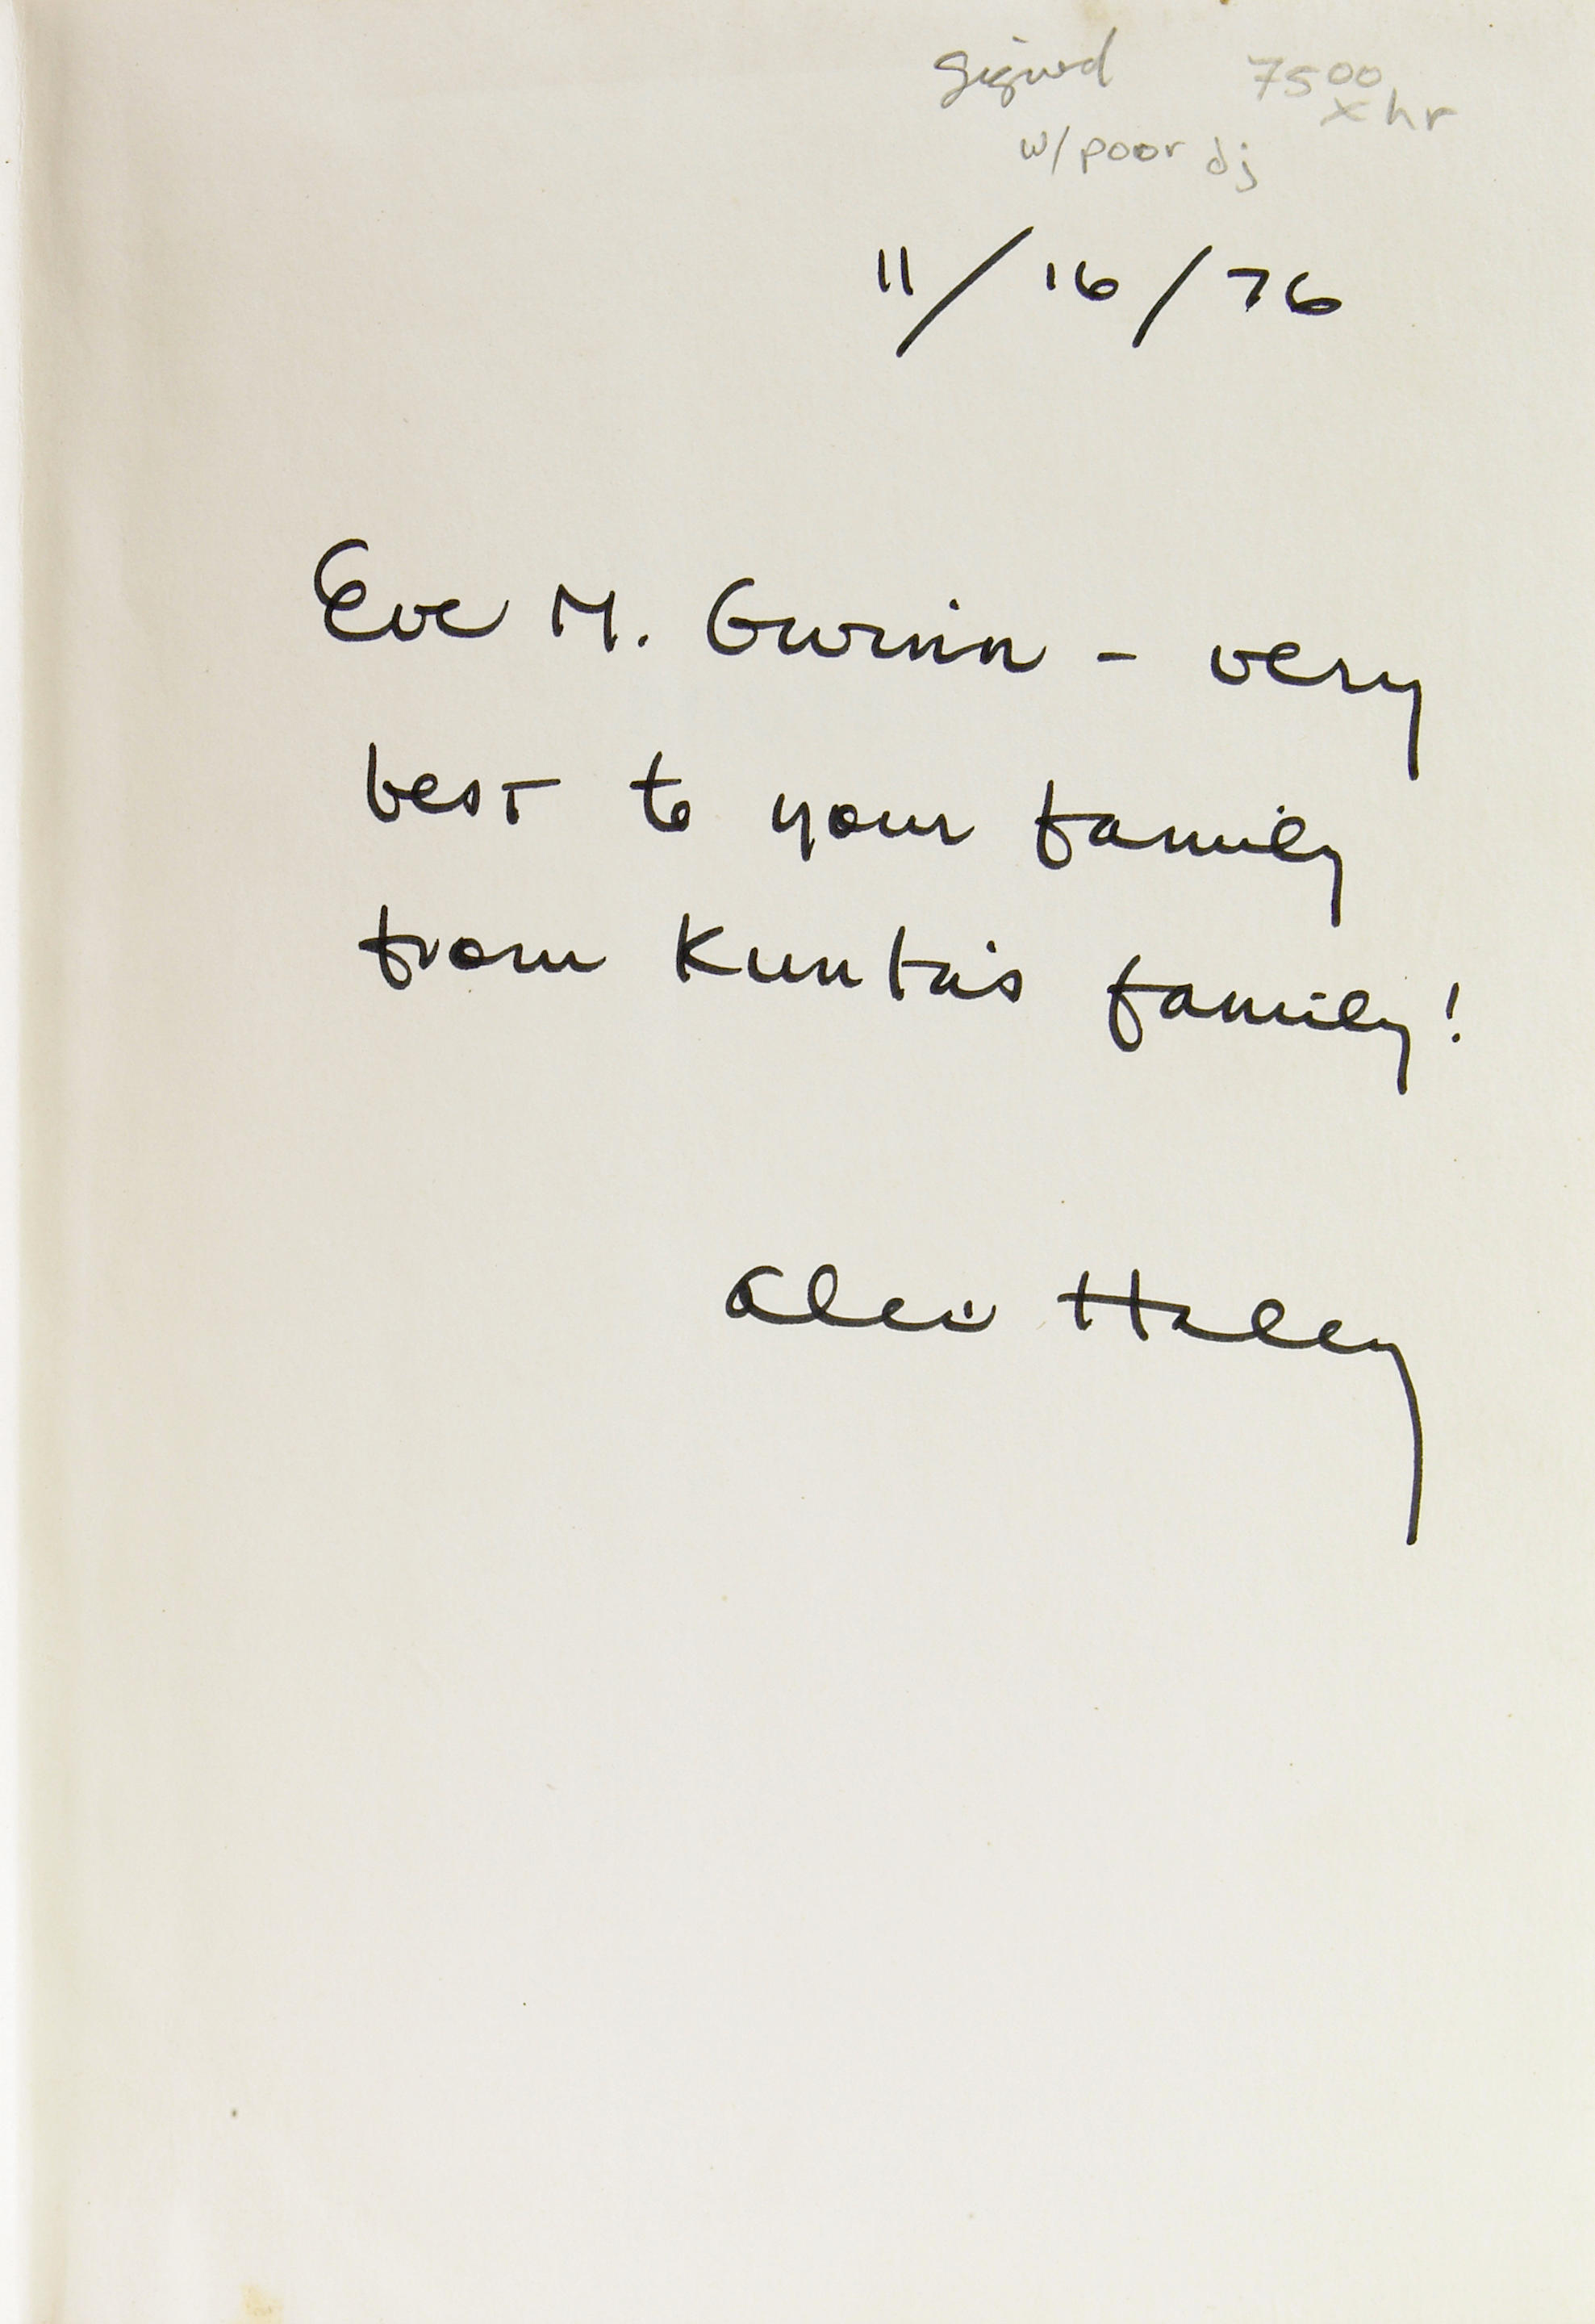 signed 75⁰⁰
x hr
w/poor dj
11/16/76
Eve M. Gwinn - very
best to your family
from Kunta's family!
Alex Haley